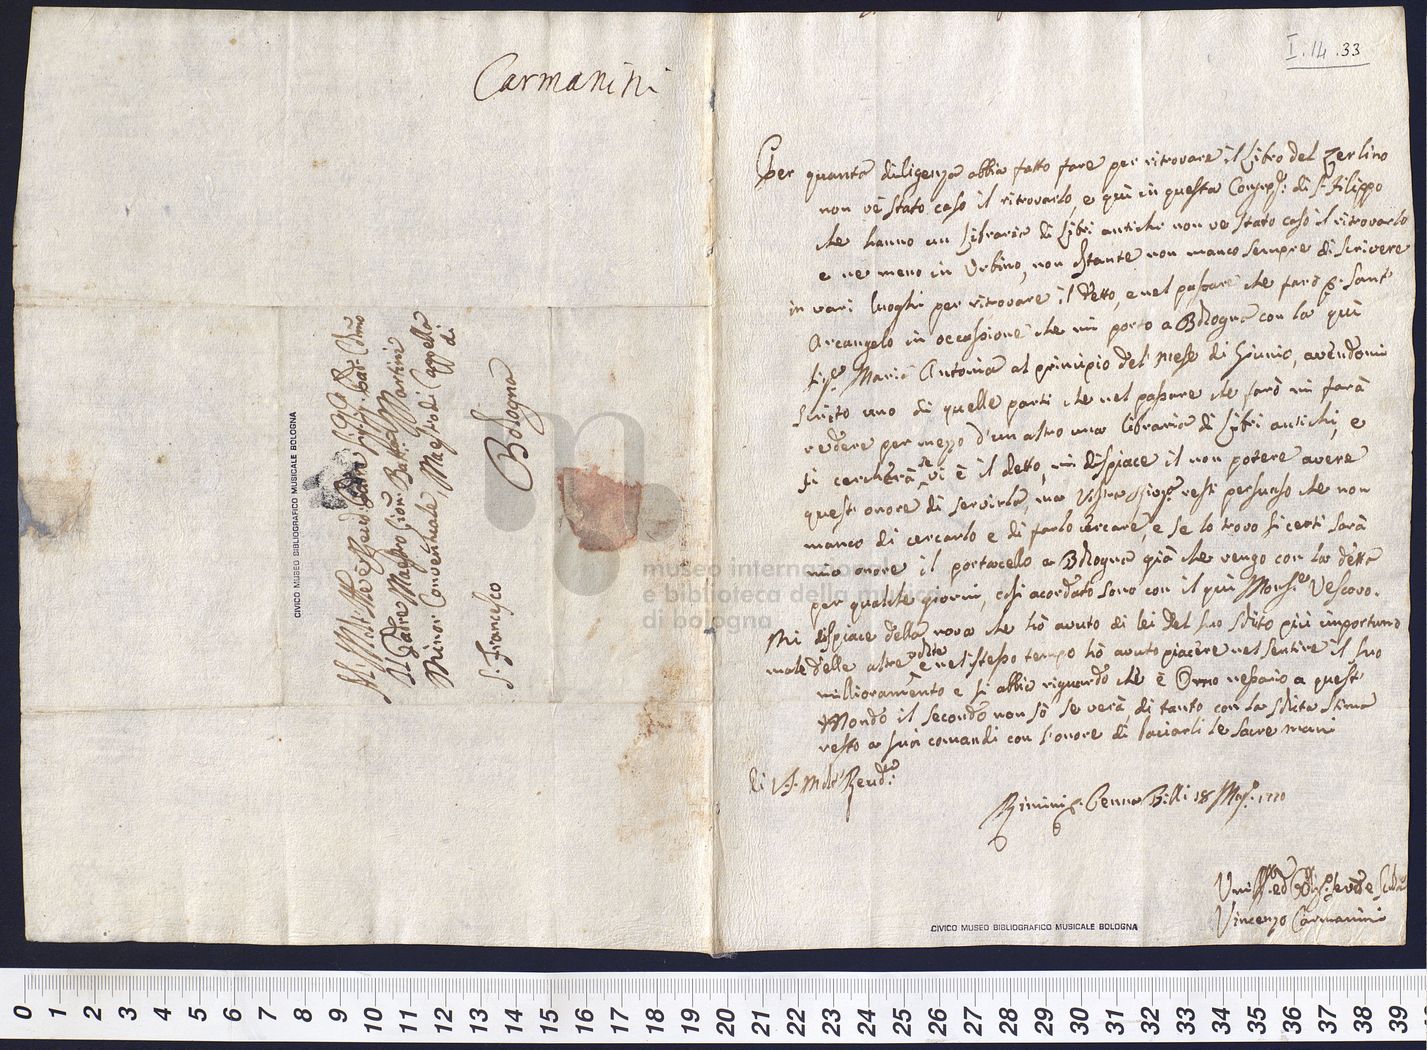 Carmanini
I.14.33
Per quanta diligenza abbia fatto fare per ritrovare il Libro del Zerlino
non vé stato caso il ritrovarlo, e quì in questa Congrg:e di S. Filippo
che hanno un Libraria di Libri antichi non ve stato caso il ritrovarlo
e ne meno in Urbino, non ostante non manco sempre di scrivere
in vari luoghi per ritrovare il detto, e nel passare che farò p. Sant
Arcangelo in occassione che mi porto a Bologna con la quì
Sig.a Maria Antonia al principio del mese di Giunio, avendomi
scritto uno di quelle parti che nel passare che farò mi farà
vedere per mezzo d'un altro una libraria di Libri antichi, e
si cercherà se vi è il detto, mi dispiace il non potere avere
quest onore di servirla, ma Vostra resti persuaso che non
manco di cercarlo e di farlo cercare, e se lo trovo si certi sarà
mio onore il portarcelo a Bologna già che vengo con la detta
per qualche giorni, così acordato sono con il quì Mons.e Vescovo.
Mi dispiace della nova che hò avuto di lei del suo solito più importuno
male delle altre volte e nel istesso tempo hò avuto piacere nel sentire il suo
millioramento e si abbia riguardo che è Omo nessario a quest
Mondo il secondo non sò se verà, di tanto con la solita stima
resto a suoi comandi con l'onore di baciarli le sacre mani
di V.S. Molt Revd:
Rimini p. Cenna Billi 18 Mag. 1770
Vincenzo Carmanini
CIVICO MUSEO BIBLIOGRAFICO MUSICALE BOLOGNA
CIVICO MUSEO BIBLIOGRAFICO MUSICALE BOLOGNA
Al Molt Revere
Il Padre Maestro Gion: Batta Martini
Minor Conventuale, Maestro di Cappella
di
S. Francesco Bologna
museo internazionale
e biblioteca della musica
di bologna
0 1 2 3 4 5 6 7 8 9 10 11 12 13 14 15 16 17 18 19 20 21 22 23 24 25 26 27 28 29 30 31 32 33 34 35 36 37 38 39